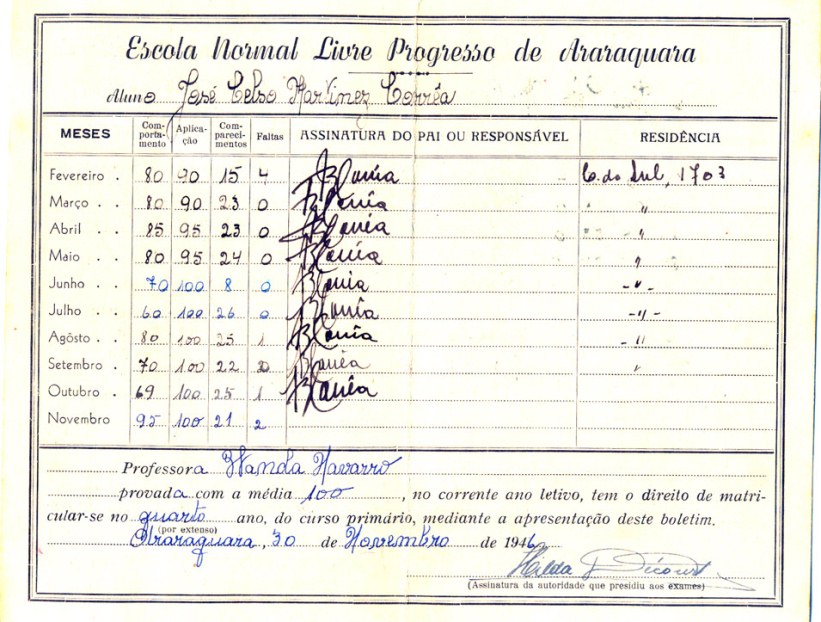 Escola Normal Livre Progresso de Araraquara
Aluno José Celso Martinez Corrêa
MESES Comportamento Aplicação Comparecimentos Faltas ASSINATURA DO PAI OU RESPONSÁVEL RESIDÊNCIA
Fevereiro . 80 90 15 4 C. do Sul, 1703
Março . . 80 90 23 0 "
Abril . . 85 95 23 0 "
Maio . . 80 95 24 0 "
Junho . . 70 100 8 0 - " -
Julho . . 60 100 26 0 - " -
Agôsto . . 80 100 25 1 - "
Setembro . 70 100 22 0 "
Outubro . 69 100 25 1
Novembro 95 100 21 2
Professora Wanda Navarro
provada com a média 100, no corrente ano letivo, tem o direito de matri-
cular-se no quarto ano, do curso primário, mediante a apresentação deste boletim.
(por extenso)
Araraquara, 30 de Novembro de 1946
Hilda
(Assinatura da autoridade que presidiu aos exames)